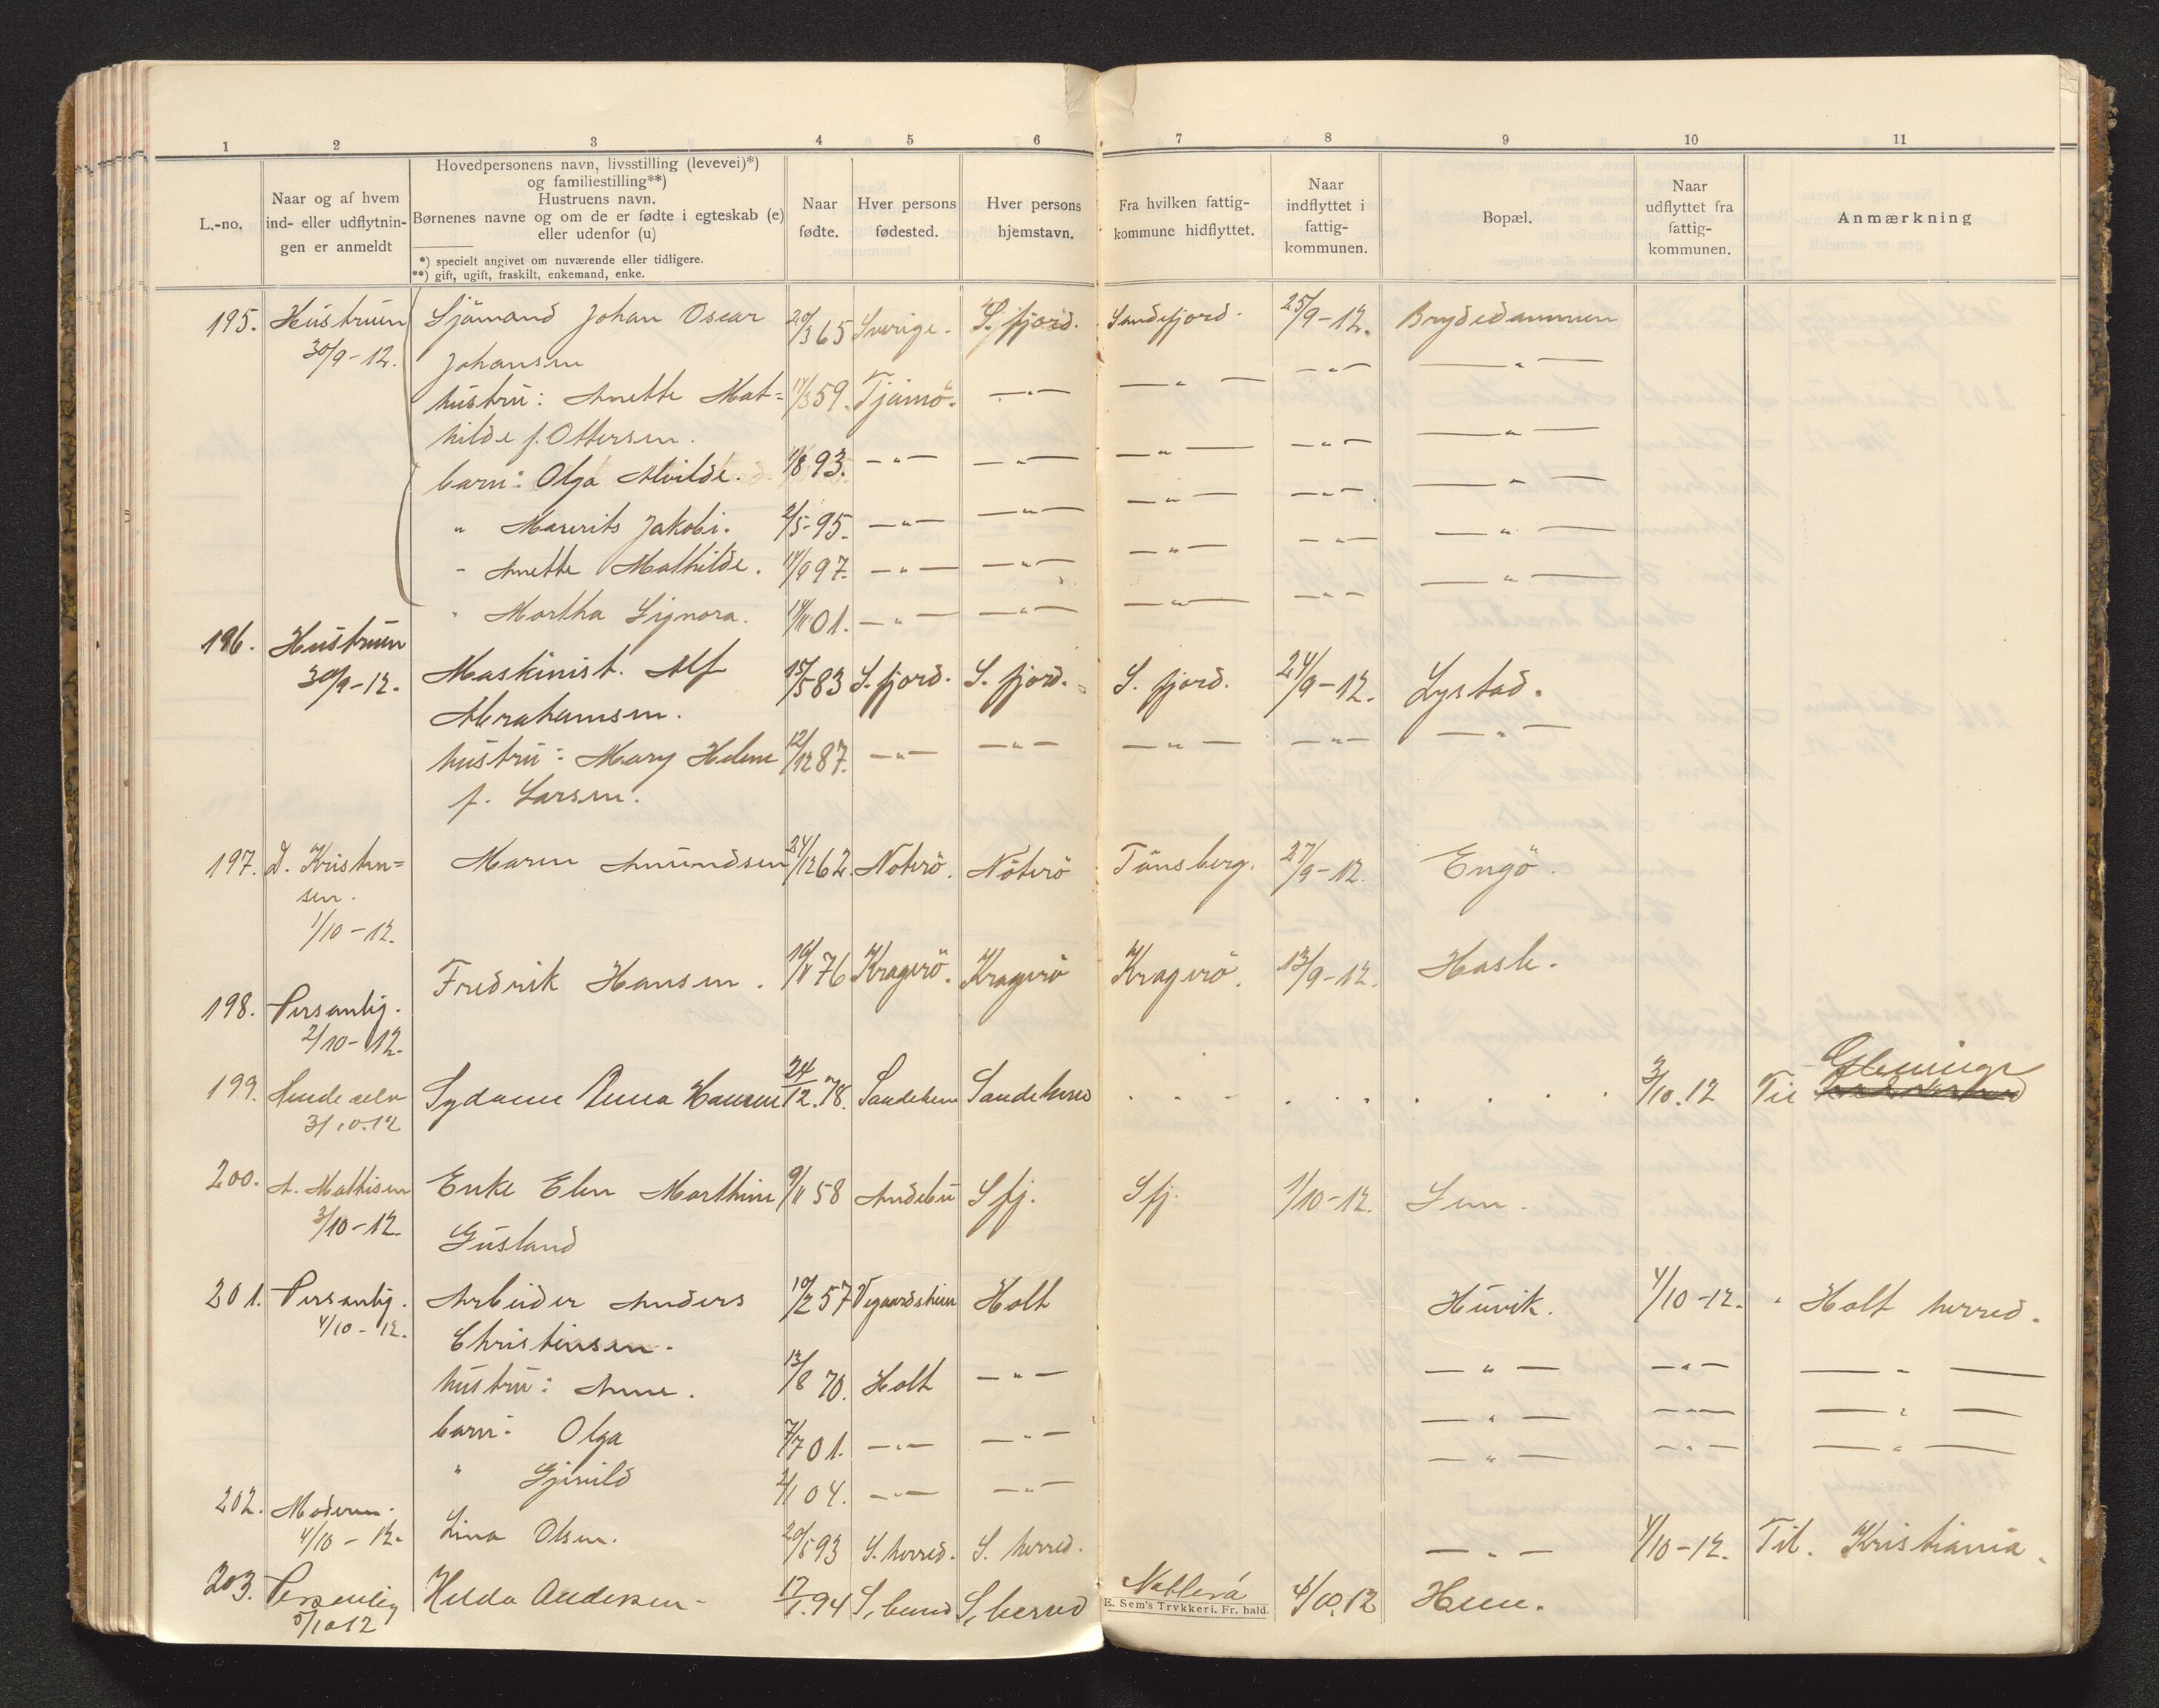 1 2 3 4 5 6 7 8 9 10 11
L.-no.
Naar og af hvem
ind- eller udflytnin-
gen er anmeldt
Hovedpersonens navn, livsstilling (levevei)*)
og familiestilling**)
Hustruens navn.
Børnenes navne og om de er fødte i egteskab (e)
eller udenfor (u)
*) specielt angivet om nuværende eller tidligere.
**) gift, ugift, fraskilt, enkemand, enke.
Naar
fødte.
Hver persons
fødested.
Hver persons
hjemstavn.
Fra hvilken fattig-
kommune hidflyttet.
Naar
indflyttet i
fattig-
kommunen.
Bopæl.
Naar
udflyttet fra
fattig-
kommunen.
Anmærkning
195. Hustruen Sjömand Johan Oscar 20/3 65 Sverige. S. fjord. Sandefjord. 25/9-12. Brydedammen
30/9-12. Johansen — " — — " —
hustru: Anette Mat= 59. Tjömö. — " — — " —
hilde f. Ottersen. — " — — " — — " —
barn: Olga Alvilde. 1/8 93. — " — — " —
" Jakobi. 2/5-95. — " — — " — — " — — " — — " —
" Anette Mathilde. 97. — " — — " — — " — — " — — " —
" Martha Signora. 01. — " — — " — — " — — " —
196. Hustruen
30/9-12. Maskinist. Alf 83 S. fjord. S. fjord. S. fjord. 24/9-12. Lystad.
Abrahamsen.
hustru: Mary Helene 12/12 87. — " — — " — — " — — " — — " —
f. Larsen.
197. D. Kristen= Maren Amundsen 24/12 62. Nöterö. Nöterö Tönsberg. 27/9-12. Engö.
sen.
1/10-12.
198. Personlig. Fredrik Hansen. 76 Kragerö. Kragerö Kragerö. 13/9-12. Hasle.
2/10-12.
199. Hende selv Anna Hansen 24/12.78. Sandeherred Sandeherred 3/10.12 Til Glemminge
3/10.12
200. A. Mathisen Enke Elen Marthine 9/11 58 Andebu Sfj. Sfj. 1/10-12.
3/10-12. Gusland
201. Personlig. Arbeider Anders 10/2 57 Vegaardsheien Holt Huvik. 4/10-12. " Holt herred.
4/10-12. Christensen.
hustru: Anne. 13/8 70. Holt — " — — " — — " — — " —
barn: Olga 7/7 01. — " — — " — — " — — " — — " —
" 04. — " — — " — — " — — " — — " —
202. Moderen.
4/10-12. Lina Olsen. 93 S. herred. S. herred. — " — 4/10-12. Til. Kristiania.
203. Personlig Hilda Andersen 94 S. herred S. herred Nøtterø 12
5/10 12
E. Sem's Trykkeri. Fr. hald.